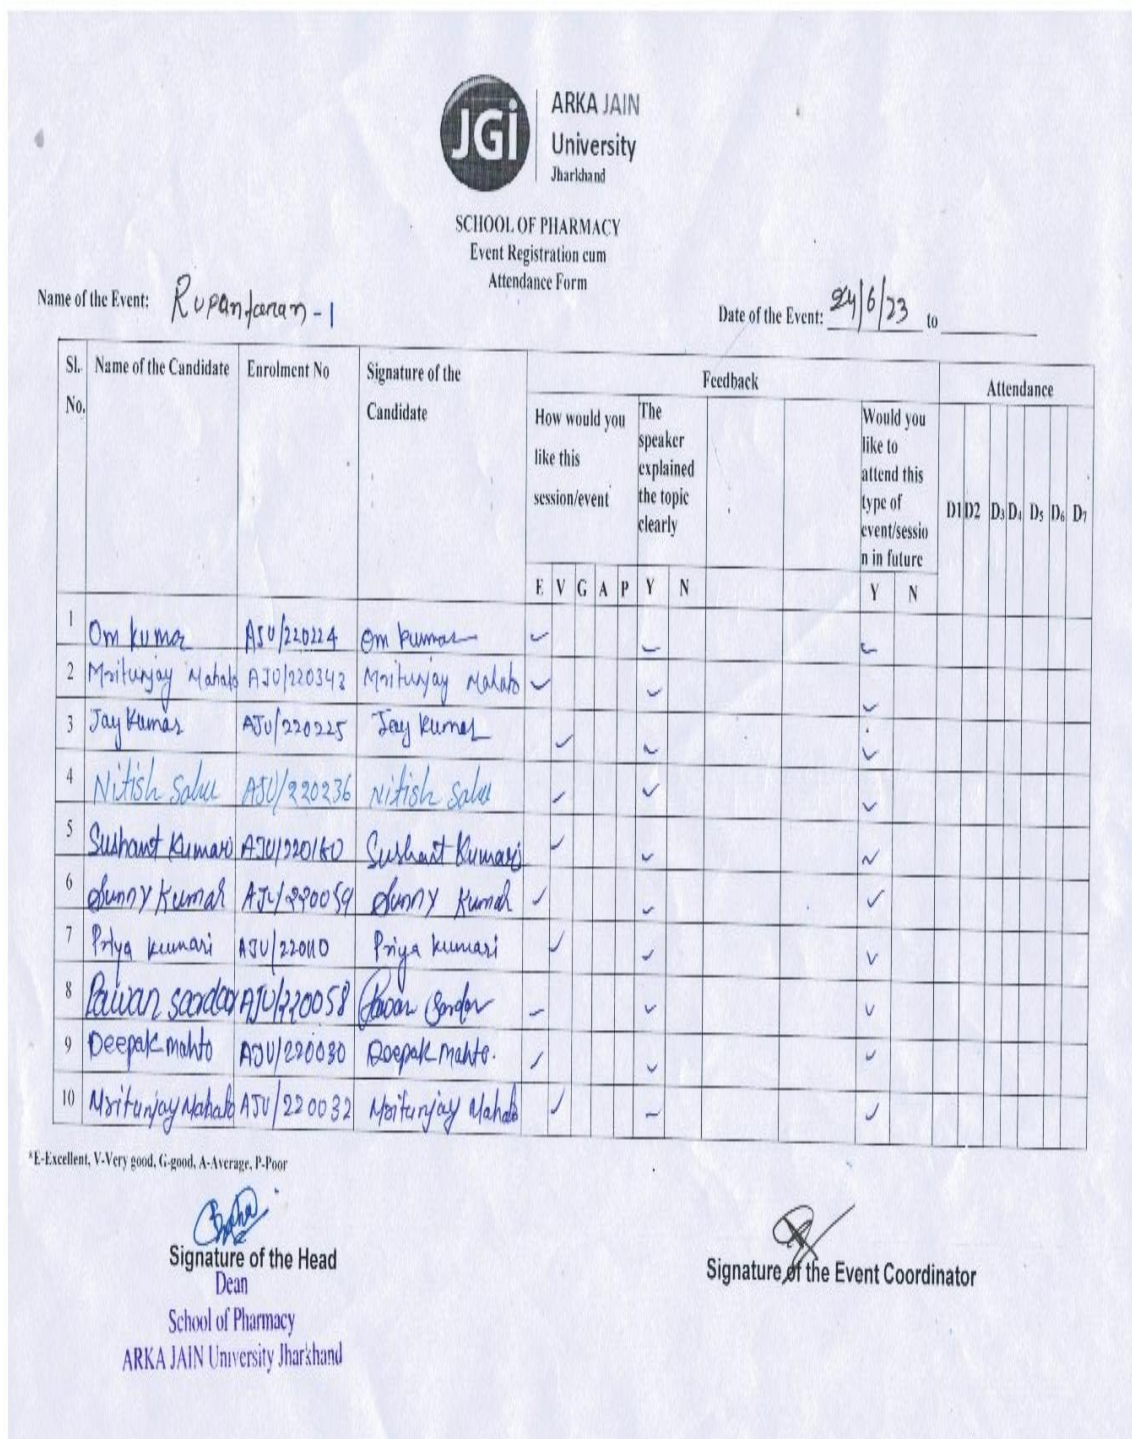 JGi
ARKA JAIN
University
Jharkhand
SCHOOL OF PHARMACY
Event Registration cum
Attendance Form
Name of the Event: Rupantaran-1
Date of the Event: 24/6/23 to
Sl. No. Name of the Candidate Enrolment No Signature of the Candidate Feedback Attendance
How would you like this session/event
The speaker explained the topic clearly
Would you like to attend this type of event/session in future
D1 D2 D3 D4 D5 D6 D7
E V G A P Y N Y N
1 Om kumar AJU/220224 Om kumar
2 Mritunjay Mahato AJU/220342 Mritunjay Mahato
3 Jay Kumar AJU/220225 Jay Kumar
4 Nitish Sahu AJU/220236 Nitish Sahu
5 Sushant Kumari Sushant Kumari
6 Sunny Kumar AJU/220059 Sunny Kumar
7 Priya kumari AJU/220110 Priya kumari
8 Pawan sardar AJU/220058 Pawan Sardar
9 Deepak mahto AJU/220030 Deepak mahto.
10 Mritunjay Mahato AJU/220032 Mritunjay Mahato
*E-Excellent, V-Very good, G-good, A-Average, P-Poor
Signature of the Head
Dean
School of Pharmacy
ARKA JAIN University Jharkhand
Signature of the Event Coordinator